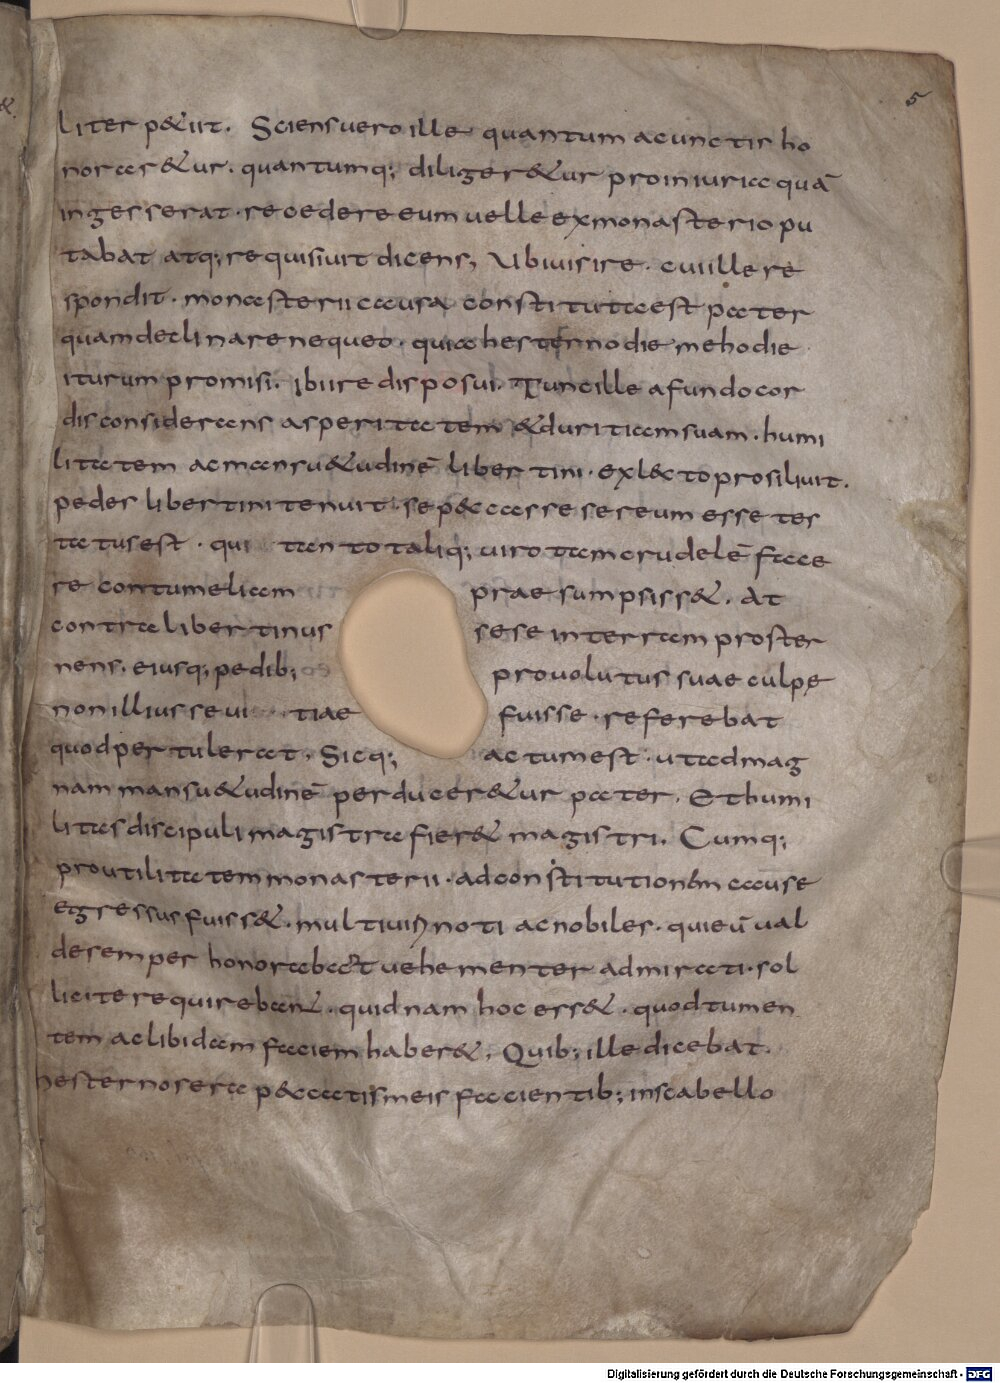 5
liter p&iit. Sciens vero ille quantum a cunctis ho
norar&ur. quantumq; diliger&ur pro iniuria quā
ingesserat. recedere eum velle ex monasterio pu
tabat atq; requisivit dicens, Ubi vis ire. cui ille re
spondit. monasterii causa constituta est pater
quam declinare nequeo. quia hesterno die me hodie
iturum promisi. ibi ire disposui. Tunc ille a fundo cor
dis considerans asperitatem & duritiam suam. humi
litatem ac mansu&udinē libertini. ex lecto prosilivit.
pedes libertini tenuit. se p&casse se reum esse tes
tatus est. qui tanto taliq; viro tam crudelē face
re contumeliam praesumpsiss&. At
contra libertinus sese in terram proster
nens. eiusq; pedib; provolutus suae culpę
non illius sevitiae fuisse. referebat
quod pertulerat. Sicq; actum est. ut ad mag
nam mansu&udinē perducer&ur pater. Et humi
litas discipuli magistra fier& magistri. Cumq;
pro utilitatem monasterii. ad constitutionem causae
egressus fuiss&. multi viri noti ac nobiles. qui eū val
de semper honorabant vehementer admirati. sol
licite requireban&. quidnam hoc ess&. quod tumen
tem ac libidam faciem haber&. Quib; ille dicebat.
hesterno sera p&catis meis facientib; in scabello
Digitalisierung gefördert durch die Deutsche Forschungsgemeinschaft - DFG